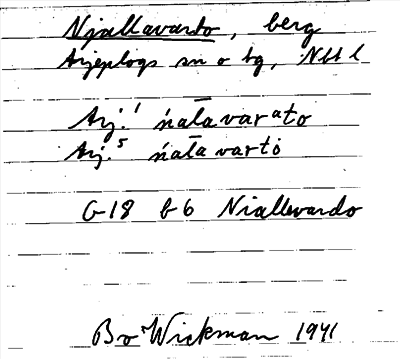 Njallavardo, berg
Arjeplogs sn o tg, Nbt l
Arj.¹ ńal̄avarᵃto
Arj.⁵ ńal̄avarto
G18 b6 Niallevardo
Bo Wickman 1941